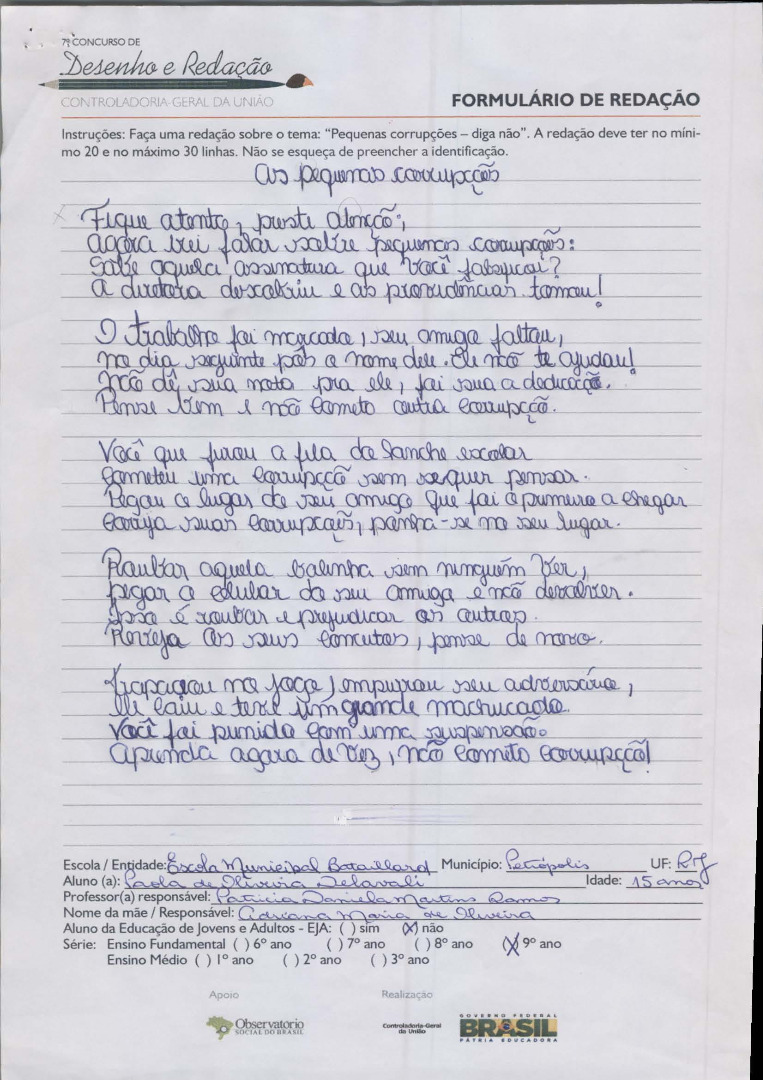 7º CONCURSO DE
Desenho e Redação
CONTROLADORIA-GERAL DA UNIÃO
FORMULÁRIO DE REDAÇÃO
Instruções: Faça uma redação sobre o tema: “Pequenas corrupções – diga não”. A redação deve ter no míni-
mo 20 e no máximo 30 linhas. Não se esqueça de preencher a identificação.
As pequenas corrupções
Fique atento, preste atenção;
agora irei falar sobre pequenas corrupções:
Sabe aquela assinatura que você falsificou?
A diretora descobriu e as providências tomou!
O trabalho foi marcado, seu amigo faltou,
no dia seguinte pôs o nome dele. Ele não te ajudou!
Não dê sua nota pra ele, foi sua a dedicação.
Pense bem e não cometa outra corrupção.
Você que furou a fila do lanche escolar
cometeu uma corrupção sem sequer pensar.
Pegou o lugar do seu amigo que foi o primeiro a chegar
corrija suas corrupções, ponha-se no seu lugar.
Roubar aquela balinha sem ninguém ver,
pegar o celular do seu amigo e não devolver.
Isso é roubar e prejudicar os outros.
Reveja os seus conceitos, pense de novo.
Trapaceou no jogo, empurrou seu adversário,
ele caiu e teve um grande machucado.
Você foi punido com uma suspensão.
Aprenda agora de vez, não cometa corrupção!
Escola / Entidade: Escola Municipal Bataillard Município: Petrópolis UF: RJ
Aluno (a): Paola de Oliveira Delavali Idade: 15 anos
Professor(a) responsável: Patricia Daniela Martins Ramos
Nome da mãe / Responsável: Adriana Maria de Oliveira
Aluno da Educação de Jovens e Adultos - EJA: ( ) sim (X) não
Série: Ensino Fundamental ( ) 6º ano ( ) 7º ano ( ) 8º ano (X) 9º ano
Ensino Médio ( ) 1º ano ( ) 2º ano ( ) 3º ano
Apoio Realização
Observatório
SOCIAL DO BRASIL
Controladoria-Geral
da União
GOVERNO FEDERAL
BRASIL
PÁTRIA EDUCADORA